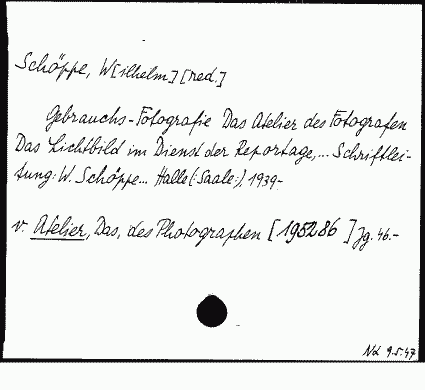 Schöppe, W[ilhelm] [red.]
Gebrauchs-Fotografie Das Atelier des Fotografen
Das Lichtbild im Dienst der Reportage,... Schriftlei-
tung: W. Schöppe... Halle (:Saale:), 1939-
v. Atelier, Das, des Photographen [195286] Jg. 46.-
Nd 9.5.47